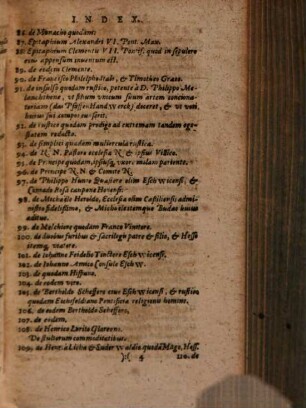 INDEX.
86. de Monacho quodam:
87. Epitaphium Alexandri VI. Pont. Max.
88. Epitaphium Clementis VII. Pontif. quod in sepulcro
eius appensum inuentum est.
89. de eodem Clemente.
90. de Francisco Philelpho Italo, & Timotheo Græco.
91. de insulso quodam rustico, petente à D. Philippo Me-
lanchthone, vt filium vnicum suum artem concinna-
toriam (das Pfaffen Handwerck) doceret, & vt veti-
92. de rustico quodam prodigo ad extremam tandem ege-
statem redacto.
93. de simplici quadam muliercula rustica.
94. de N. N. Pastore ecclesiæ N & ipsius Villico.
95. de Principe quodam, ipsiusq; vxore molam pariente.
96. de Principe N. N. & Comite N.
97. de Philippo Hunen Quæstore olim Eschwicensi, &
Conrado Rosa caupone Herouensi.
98. de Michaële Heroldo, Ecclesiæ olim Capillarensi admi-
nistro fidelissimo, & Michaëlestomque Budas huius
aditus.
99. de Melchiore quodam Franco Vinitore.
100. de duobus furibus & sacrilegis patre & filio, & Hesse
itemq; matre.
101. de Iohanne Feidebo Tinctore Eschwicensi.
102. de Iohanne Amico Consule Eschw.
103. de quodam Hispano.
104. de eodem vere.
105. de Bertholdo Scheffero ciue Eschwicensi, & rustico
quodam Eichsfeldiano Pontificiæ religionis homine.
106. de eodem Bertholdo Scheffero.
107. de eodem.
108. de Henrico Lorito Glareano.
De stultorum commoditatibus.
109. de Henr. à Licha & Euder Waldis quodã Mago, Hess.
)( 4
110. de